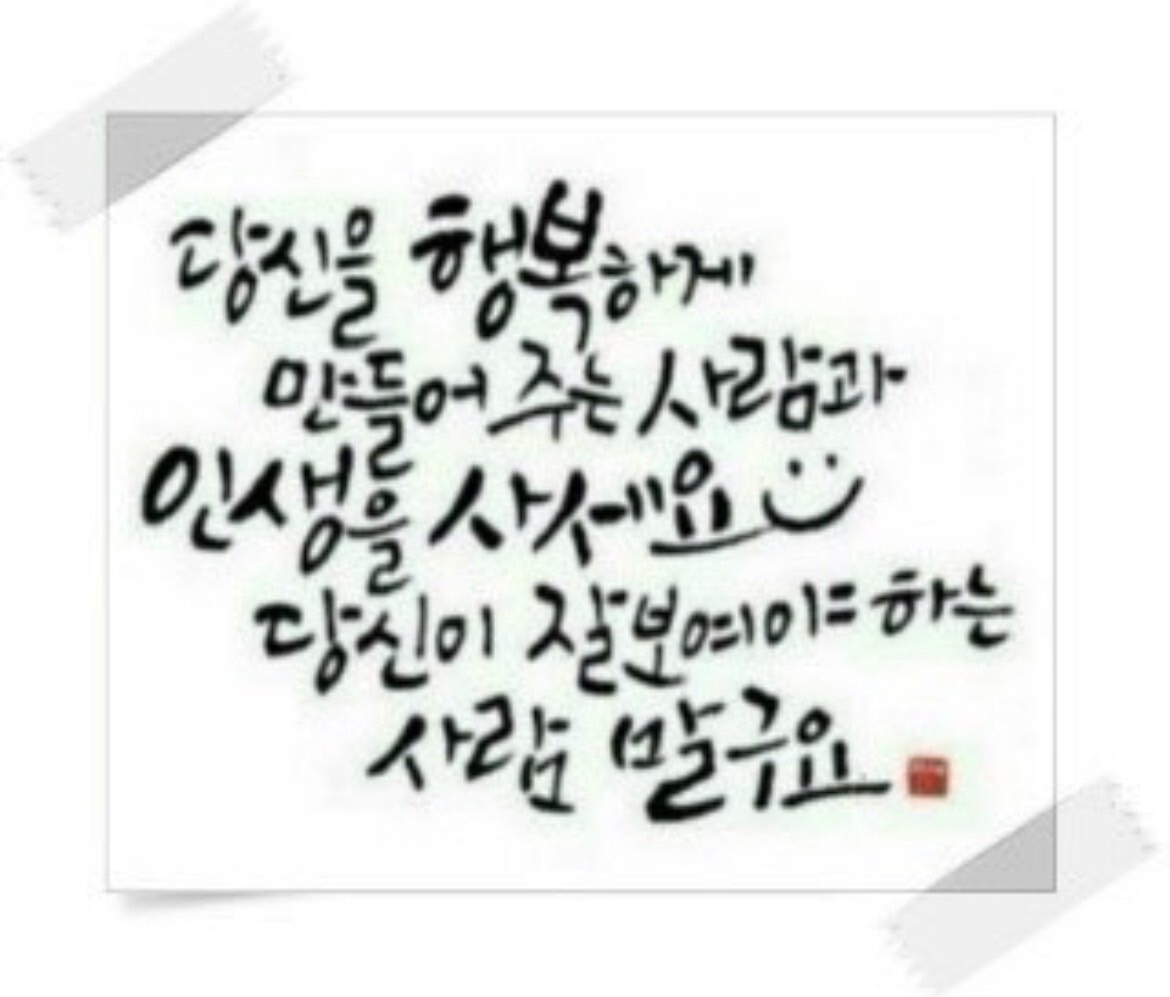 당신을 행복하게
만들어 주는 사람과
인생을 사세요
당신이 잘보여야 하는
사람 말구요